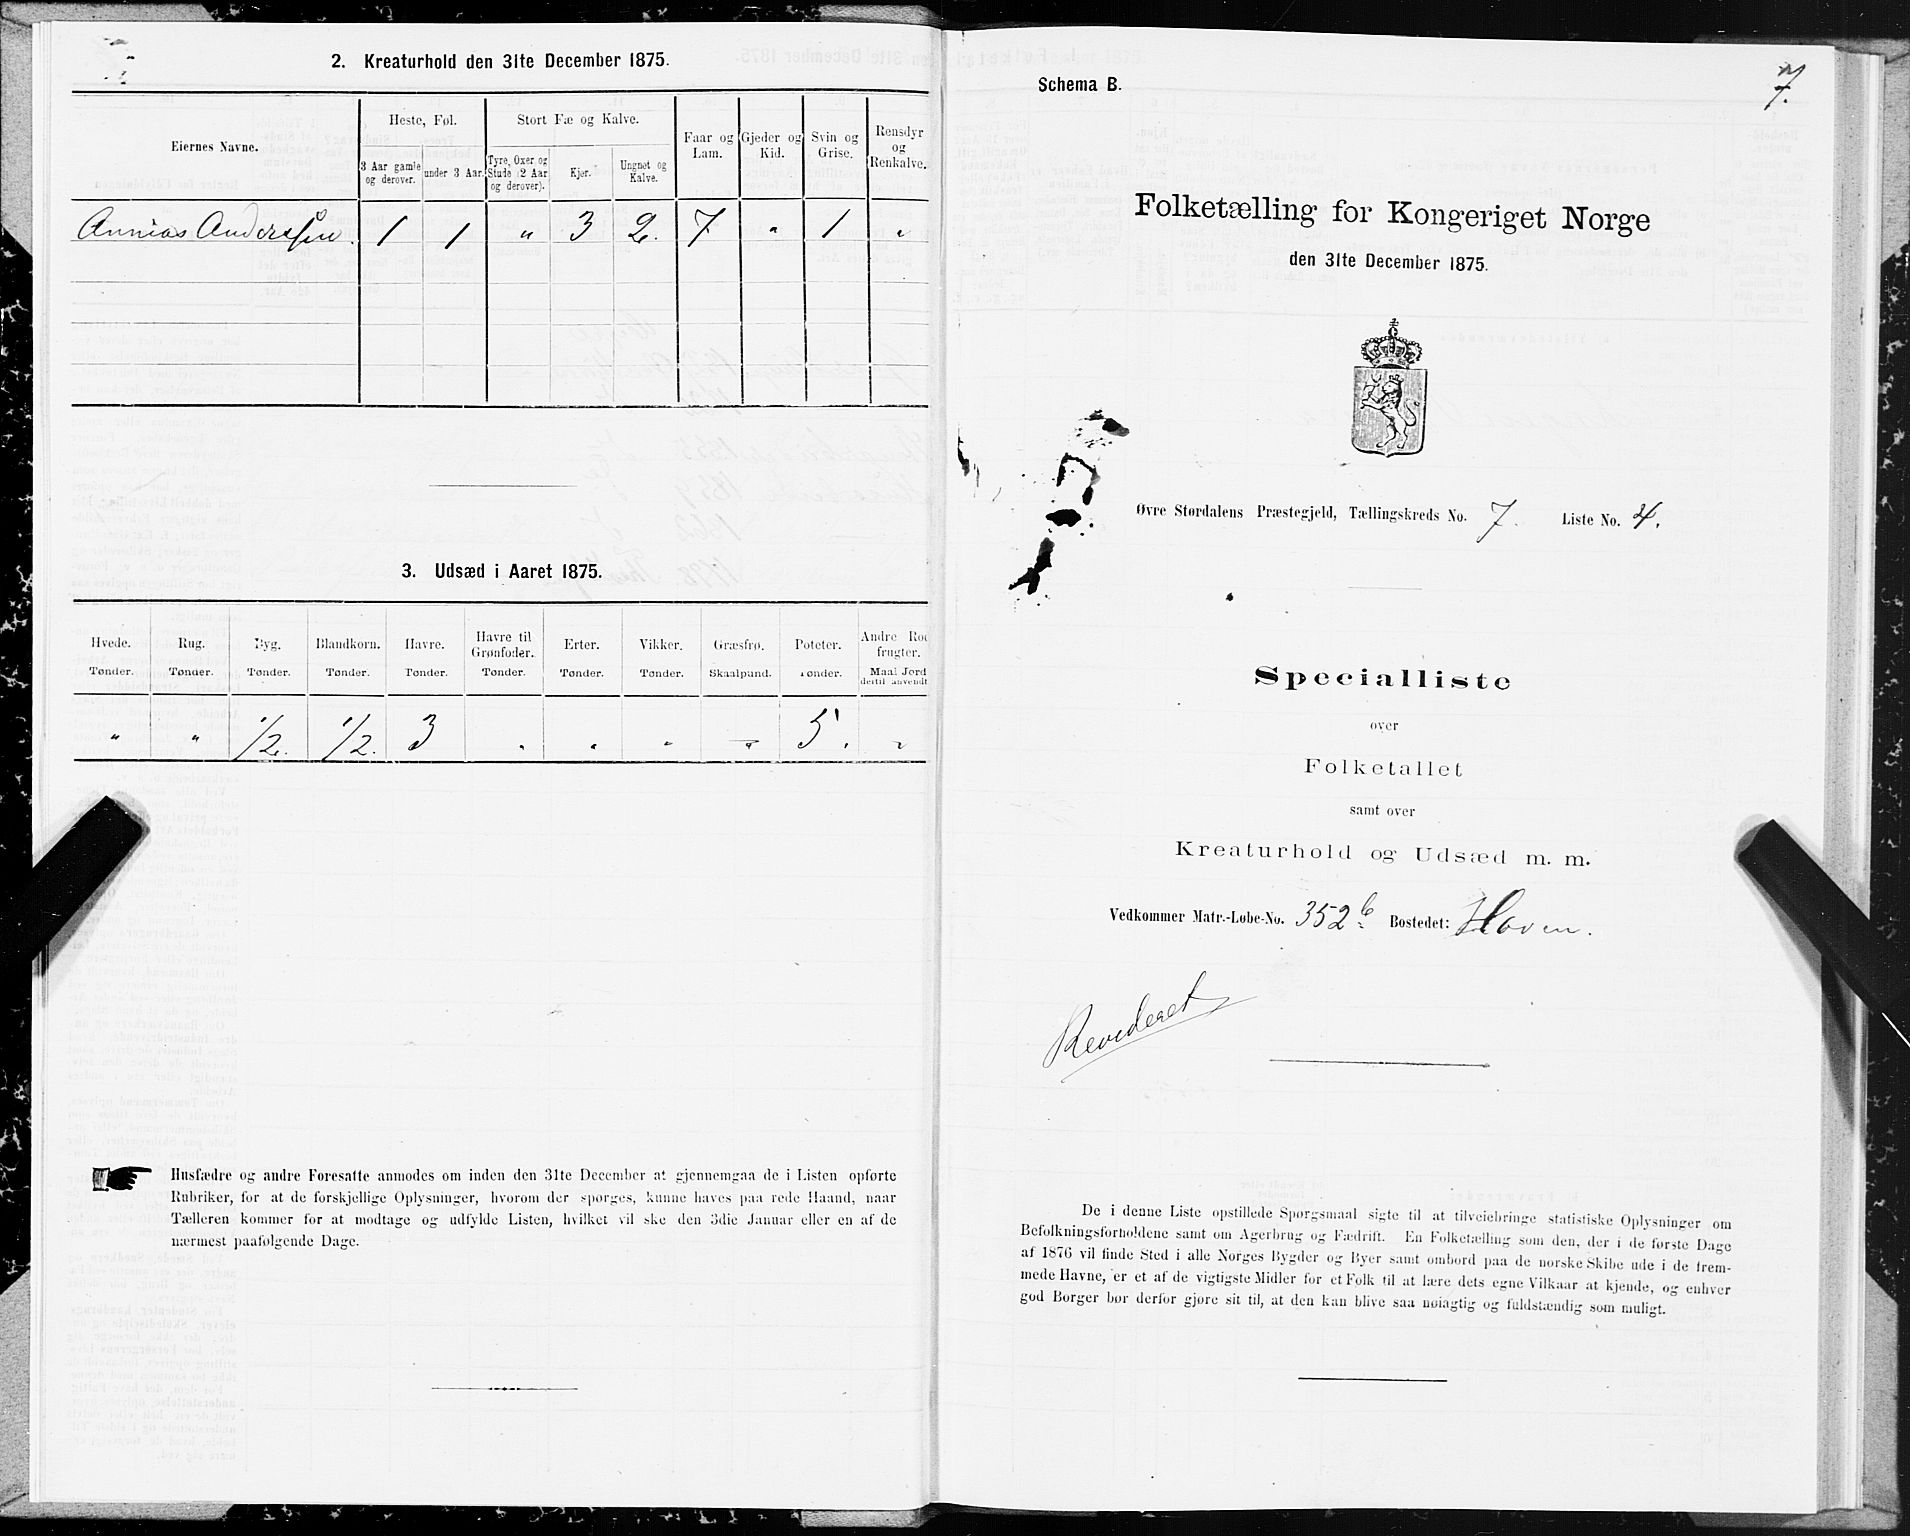 2. Kreaturhold den 31te December 1875.
Eiernes Navne.
Heste, Føl.
Stort Fæ og Kalve.
Faar og Lam.
Gjeder og Kid.
Svin og Grise.
Rensdyr og Renkalve.
3 Aar gamle og derover.
under 3 Aar.
Tyre, Oxer og Stude (2 Aar og derover).
Kjør.
Ungnøt og Kalve.
Annias Anderssen. 1 1 " 3 2. 7 " 1 "
3. Udsæd i Aaret 1875.
Hvede. Rug. Byg. Blandkorn. Havre. Havre til Grønfoder. Erter. Vikker. Græsfrø. Poteter. Andre Rodfrugter.
Tønder. Tønder. Tønder. Tønder. Tønder. Tønder. Tønder. Tønder. Skaalpund. Tønder. Maal Jord dertil anvendt
" " 1/2. 1/2. 3 " " " " 5. "
Husfædre og andre Foresatte anmodes om inden den 31te December at gjennemgaa de i Listen opførte
Rubriker, for at de forskjellige Oplysninger, hvorom der spørges, kunne haves paa rede Haand, naar
Tælleren kommer for at modtage og udfylde Listen, hvilket vil ske den 3die Januar eller en af de
nærmest paafølgende Dage.
7.
Schema B.
Folketælling for Kongeriget Norge
den 31te December 1875.
Øvre Størdalens Præstegjeld, Tællingskreds No. 7. Liste No. 4.
Specialliste
over
Folketallet
samt over
Kreaturhold og Udsæd m. m.
Vedkommer Matr.-Løbe-No. 352 b Bostedet: Hoven.
Revideret
De i denne Liste opstillede Spørgsmaal sigte til at tilveiebringe statistiske Oplysninger om
Befolkningsforholdene samt om Agerbrug og Fædrift. En Folketælling som den, der i de første Dage
af 1876 vil finde Sted i alle Norges Bygder og Byer samt ombord paa de norske Skibe ude i de frem-
mede Havne, er et af de vigtigste Midler for et Folk til at lære dets egne Vilkaar at kjende, og enhver
god Borger bør derfor gjøre sit til, at den kan blive saa nøiagtig og fuldstændig som muligt.